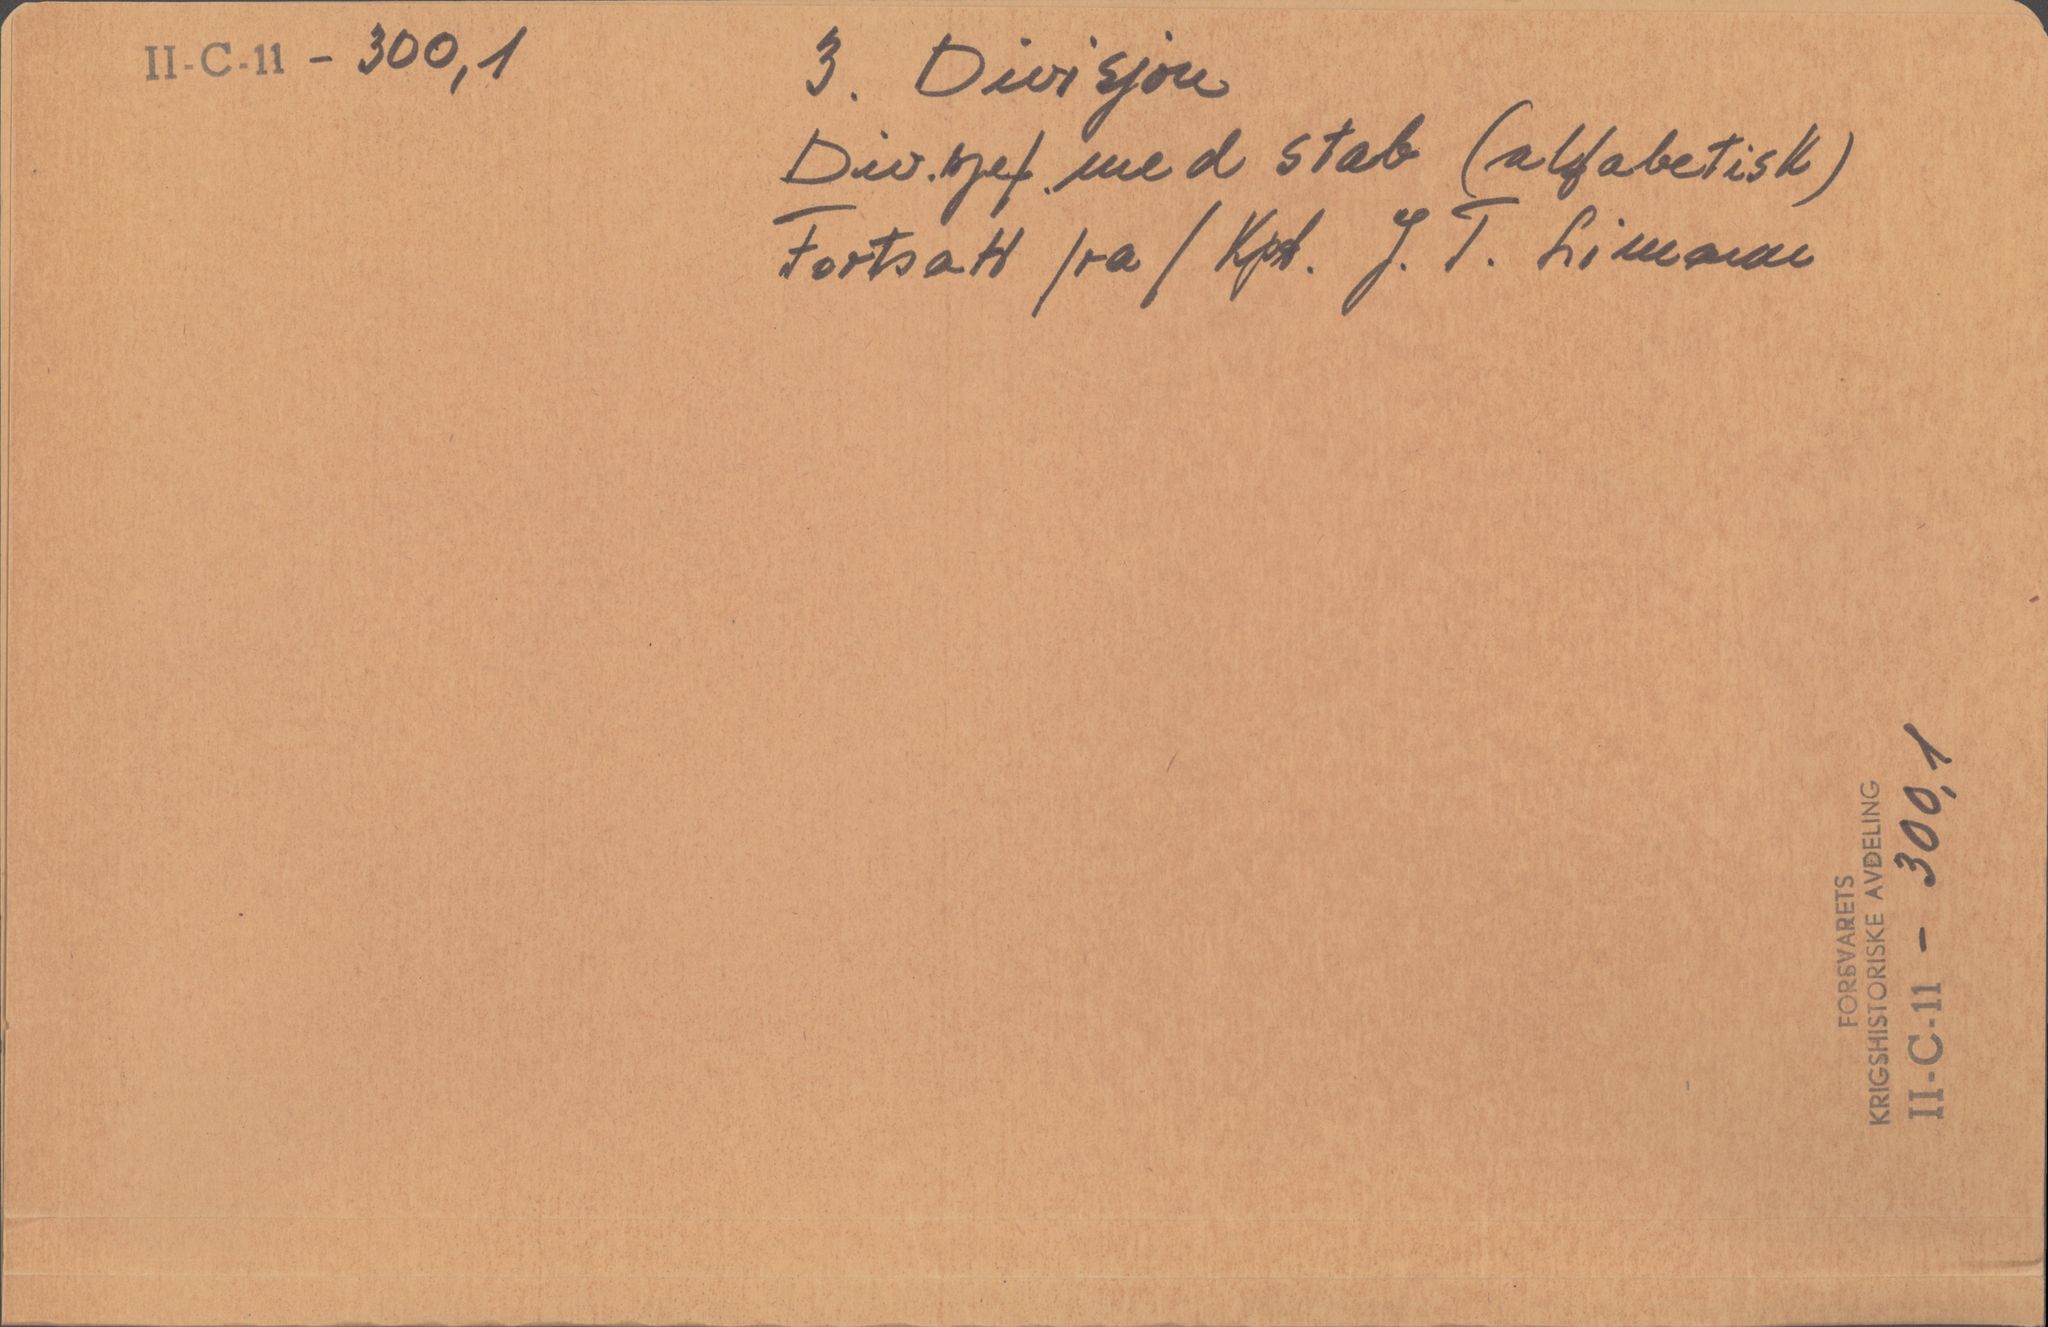 II-C-11 - 300,1
3. Divisjon
Div.sjef. med stab (alfabetisk)
Fortsatt fra / Kpt. J. T. Limann
FORSVARETS
KRIGSHISTORISKE AVDELING
II-C-11 - 300,1